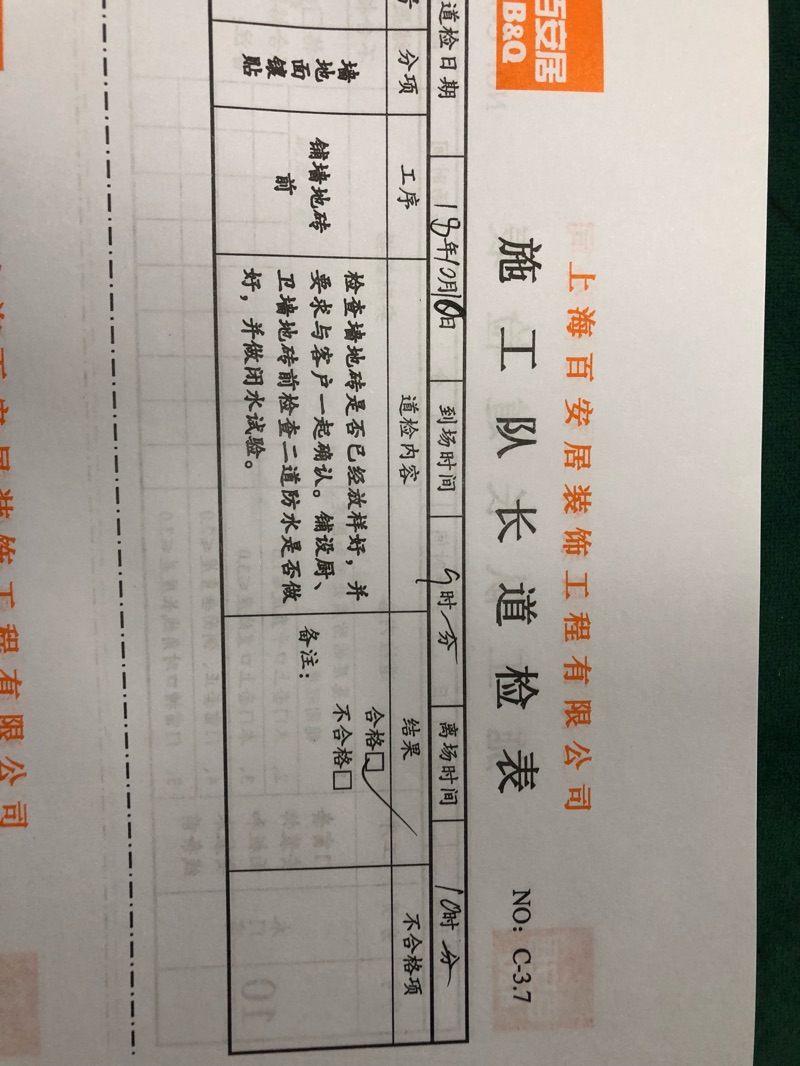 百安居
B&Q
上海百安居装饰工程有限公司
施工队长道检表
NO: C-3.7
道检日期 18年10月10日 到场时间 9时 分 离场时间 10时 分
号 分项 工序 道检内容 结果 不合格项
墙地面镶贴
铺墙地砖前
检查墙地砖是否已经放样好，并
要求与客户一起确认。铺设厨、
卫墙地砖前检查二道防水是否做
好，并做闭水试验。
合格□✓
不合格□
备注：
百安居装饰工程有限公司